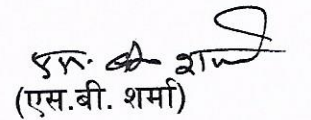 एस. बी. शर्मा
(एस.बी. शर्मा)